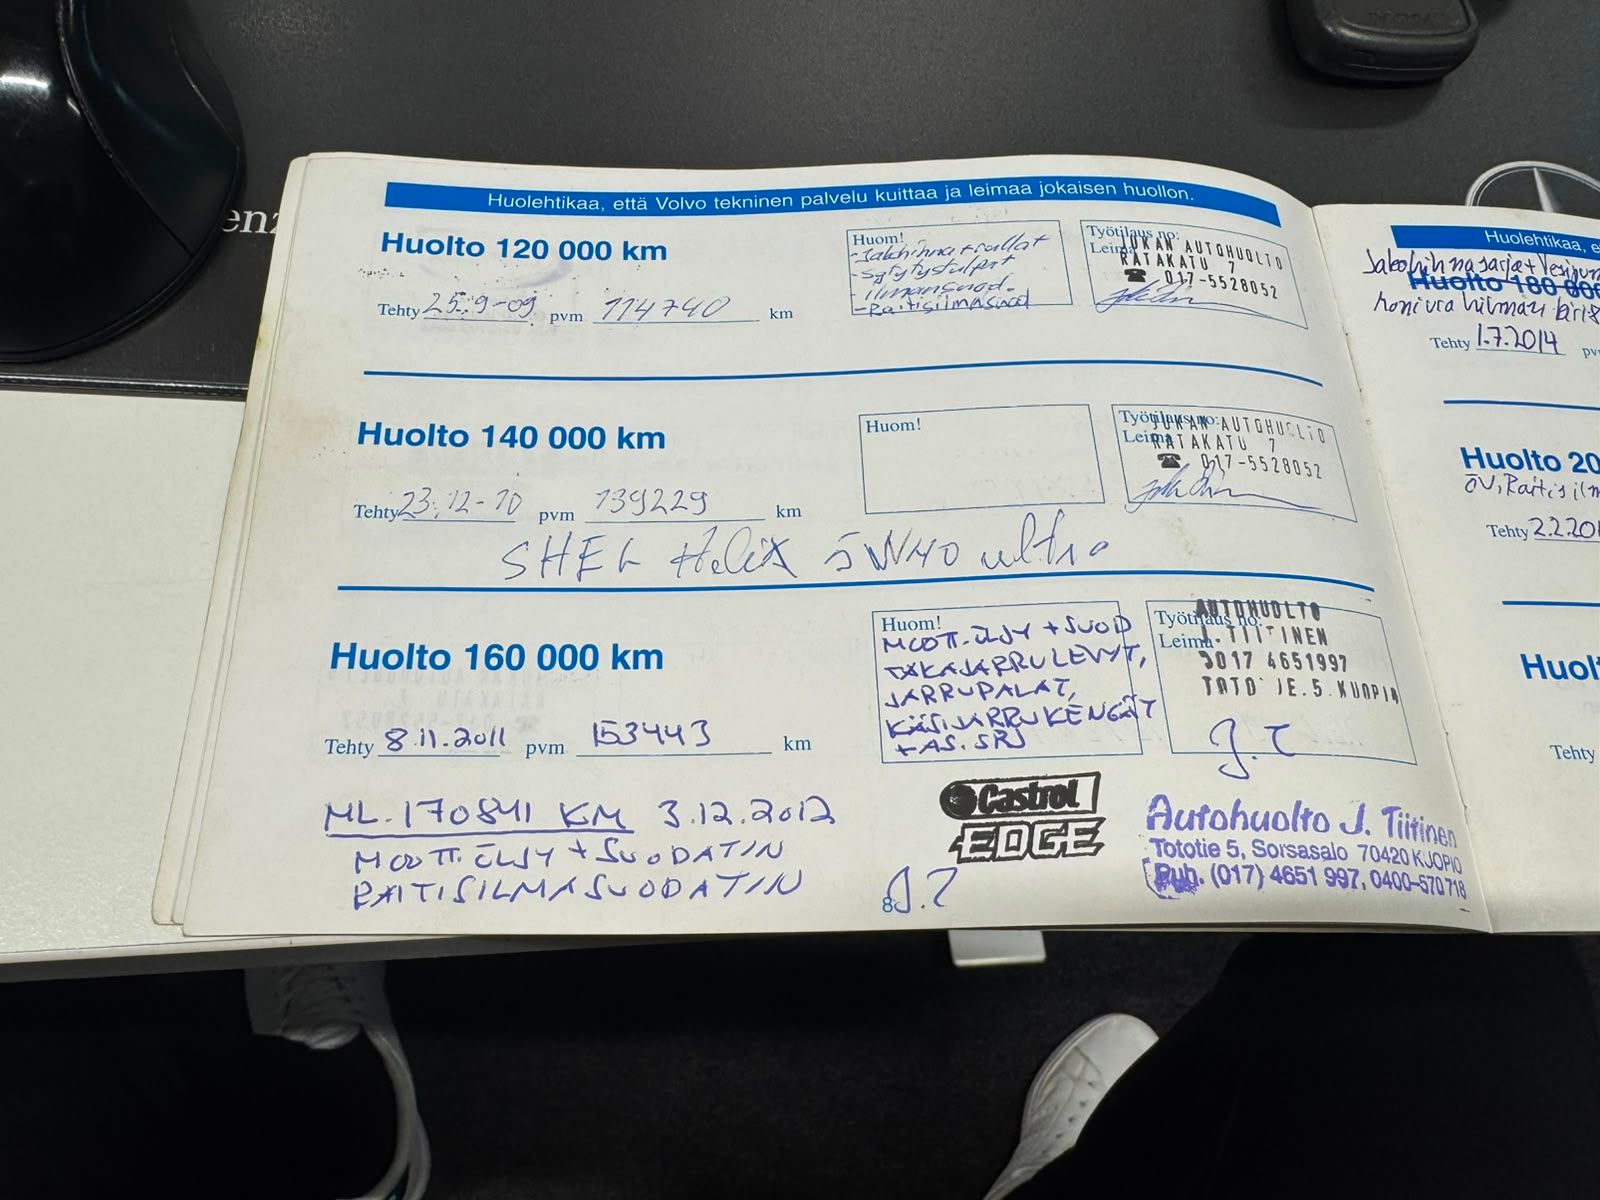 Huolehtikaa, että Volvo tekninen palvelu kuittaa ja leimaa jokaisen huollon.
Huolto 120 000 km
Tehty 25.9-09 pvm 114740 km
Huom!
-Jakohihna+rullat
-Sytytystulpat
-Ilmansuod.
-Raitisilmasuod
Työtilaus no:
Leima
JUKAN AUTOHUOLTO
RATAKATU 7
☎ 017-5528052
Huolto 140 000 km
Tehty 23.12-10 pvm 139229 km
Huom!
Työtilaus no:
Leima
JUKAN AUTOHUOLTO
RATAKATU 7
☎ 017-5528052
SHEL Helix 5W40 ultra
Huolto 160 000 km
Tehty 8.11.2011 pvm 153443 km
Huom!
MOOTT.ÖLJY + SUOD
TAKAJARRULEVYT,
JARRUPALAT,
KÄSIJARRUKENGÄT
+ AS. SRJ
Työtilaus no:
Leima
AUTOHUOLTO
J.TIITINEN
5017 4651997
TOTOTIE.5.KUOPIO
J.T
ML. 170841 KM 3.12.2012
MOOTT.ÖLJY + SUODATIN
RAITISILMASUODATIN
Castrol
EDGE
J.T
8
Autohuolto J. Tiitinen
Tototie 5, Sorsasalo 70420 KUOPIO
Puh. (017) 4651 997, 0400-570 718
Huolehtikaa, e
Huolto 180 000
Tehty 1.7.2014 pv
Huolto 20
Tehty 2.2.20
Huol
Tehty
enz